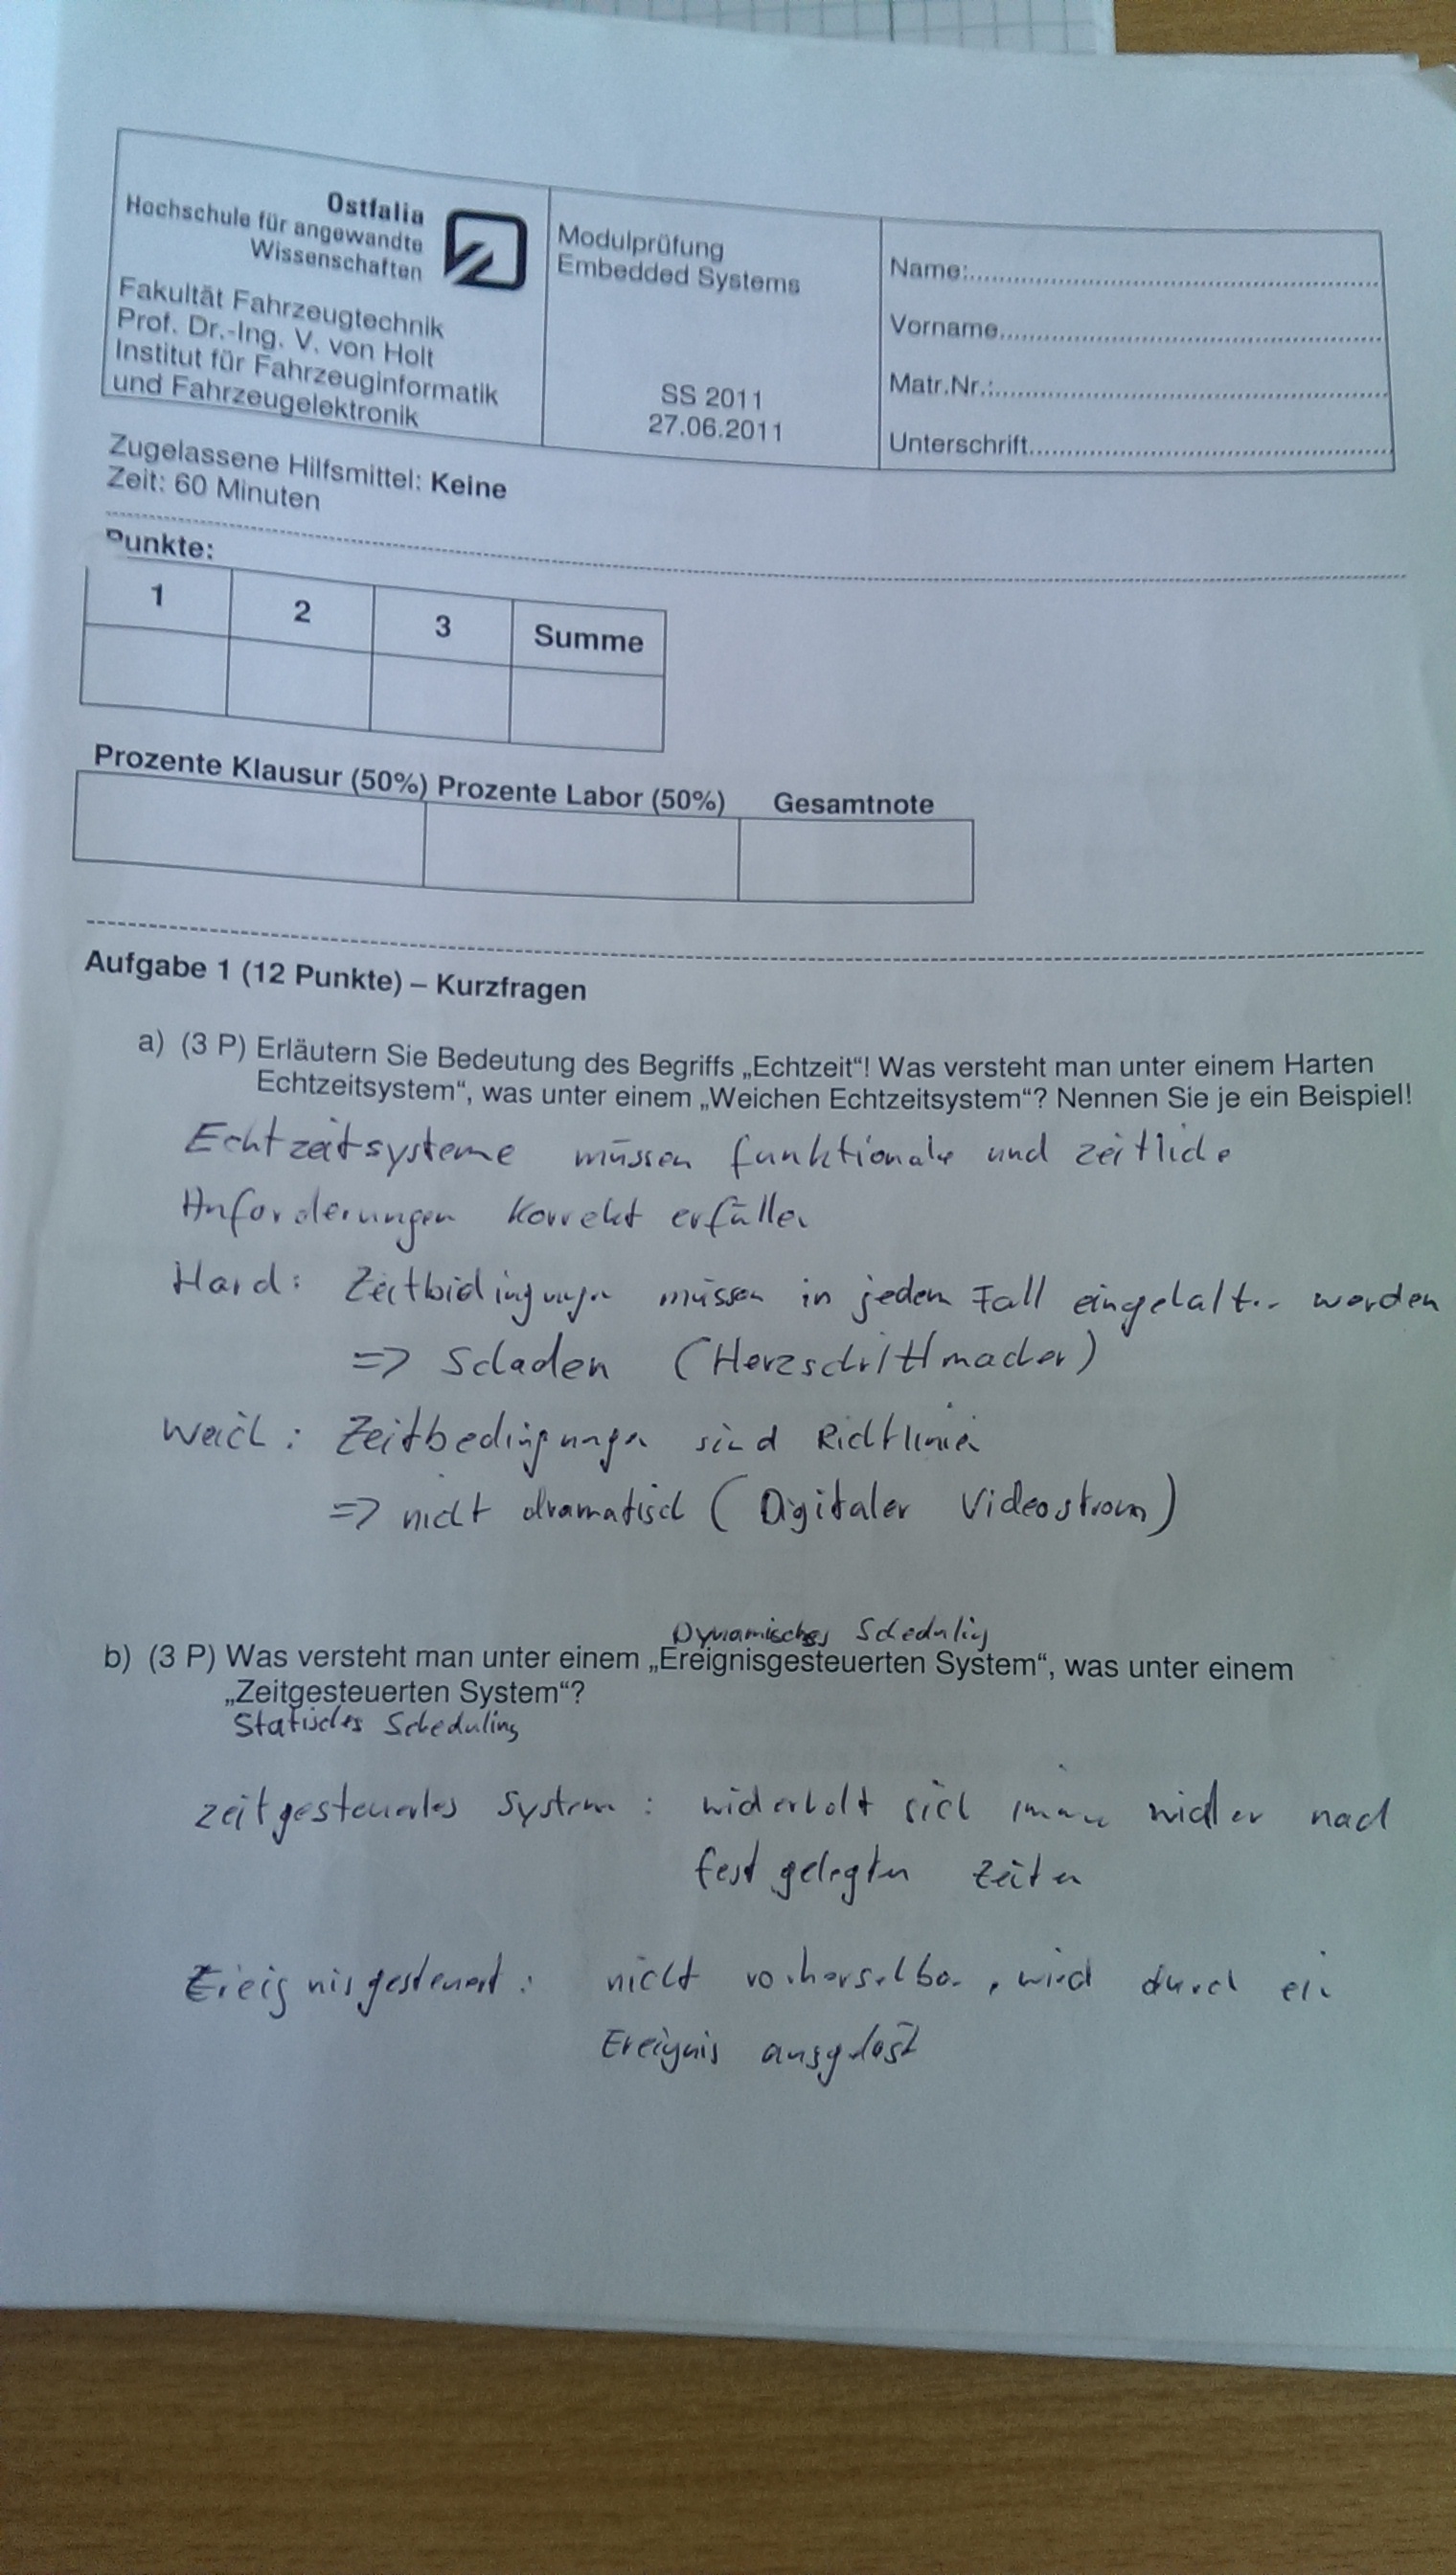 Ostfalia
Hochschule für angewandte
Wissenschaften
Fakultät Fahrzeugtechnik
Prof. Dr.-Ing. V. von Holt
Institut für Fahrzeuginformatik
und Fahrzeugelektronik
Modulprüfung
Embedded Systems
SS 2011
27.06.2011
Name:
Vorname
Matr.Nr.:
Unterschrift
Zugelassene Hilfsmittel: Keine
Zeit: 60 Minuten
Punkte:
1 2 3 Summe
Prozente Klausur (50%) Prozente Labor (50%) Gesamtnote
Aufgabe 1 (12 Punkte) – Kurzfragen
a) (3 P) Erläutern Sie Bedeutung des Begriffs „Echtzeit“! Was versteht man unter einem Harten
Echtzeitsystem“, was unter einem „Weichen Echtzeitsystem“? Nennen Sie je ein Beispiel!
Echtzeitsysteme müssen funktionale und zeitliche
Anforderungen korrekt erfüllen
Hard: Zeitbidingungen müssen in jedem Fall eingehalten werden
=> Schaden (Herzschrittmacher)
Weich: Zeitbedingungen sind Richtlinien
=> nicht dramatisch (Digitaler Videostrom)
Dynamisches Scheduling
b) (3 P) Was versteht man unter einem „Ereignisgesteuerten System“, was unter einem
„Zeitgesteuerten System“?
Statisches Scheduling
zeitgesteuertes System: widerholt sich immer wider nach
fest gelegten Zeiten
Ereignisgesteuert: nicht vorhersehbar, wird durch ein
Ereignis ausgelöst